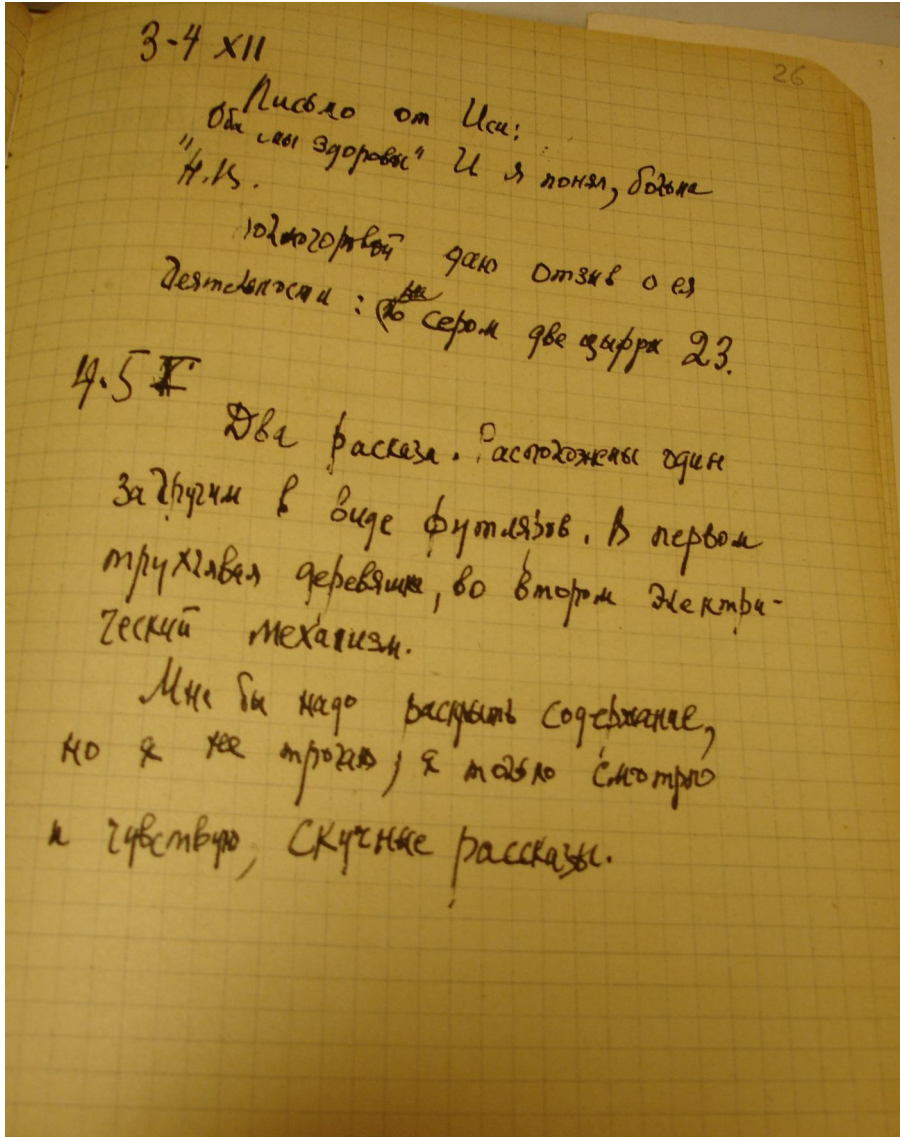 26
3-4 XII
Письмо от Иси:
"Оба мы здоровы" И я понял, больна
Н.К.
даю отзыв о ея
деятельности: на сером две цыфры 23.
4.5 X
Два расказа. Расположены один
за другим в виде футляров. В первом
трухлявая деревяшка, во втором электри-
ческий механизм.
Мне бы надо раскрыть содержание,
но я не трогаю, я только смотрю
и чувствую, скучные рассказы.